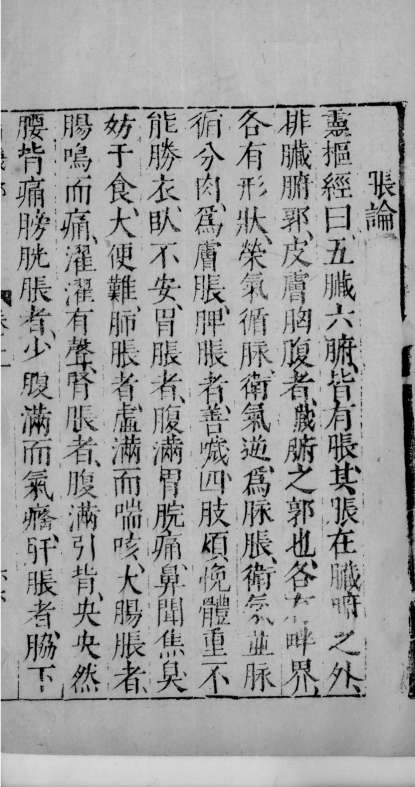 脹論
靈樞經曰五臟六腑皆有脹其脹在臟腑之外
排臟腑郭皮膚胸腹者臟腑之郭也各有畔界
各有形狀榮氣循脉衛氣逆爲脉脹衛氣並脉
循分肉爲膚脹脾脹者善噦四肢煩悗體重不
能勝衣臥不安胃脹者腹滿胃脘痛鼻聞焦臭
妨于食大便難肺脹者虛滿而喘咳大腸脹者
腸鳴而痛濯濯有聲腎脹者腹滿引背央央然
腰背痛膀胱脹者少腹滿而氣癃肝脹者脇下